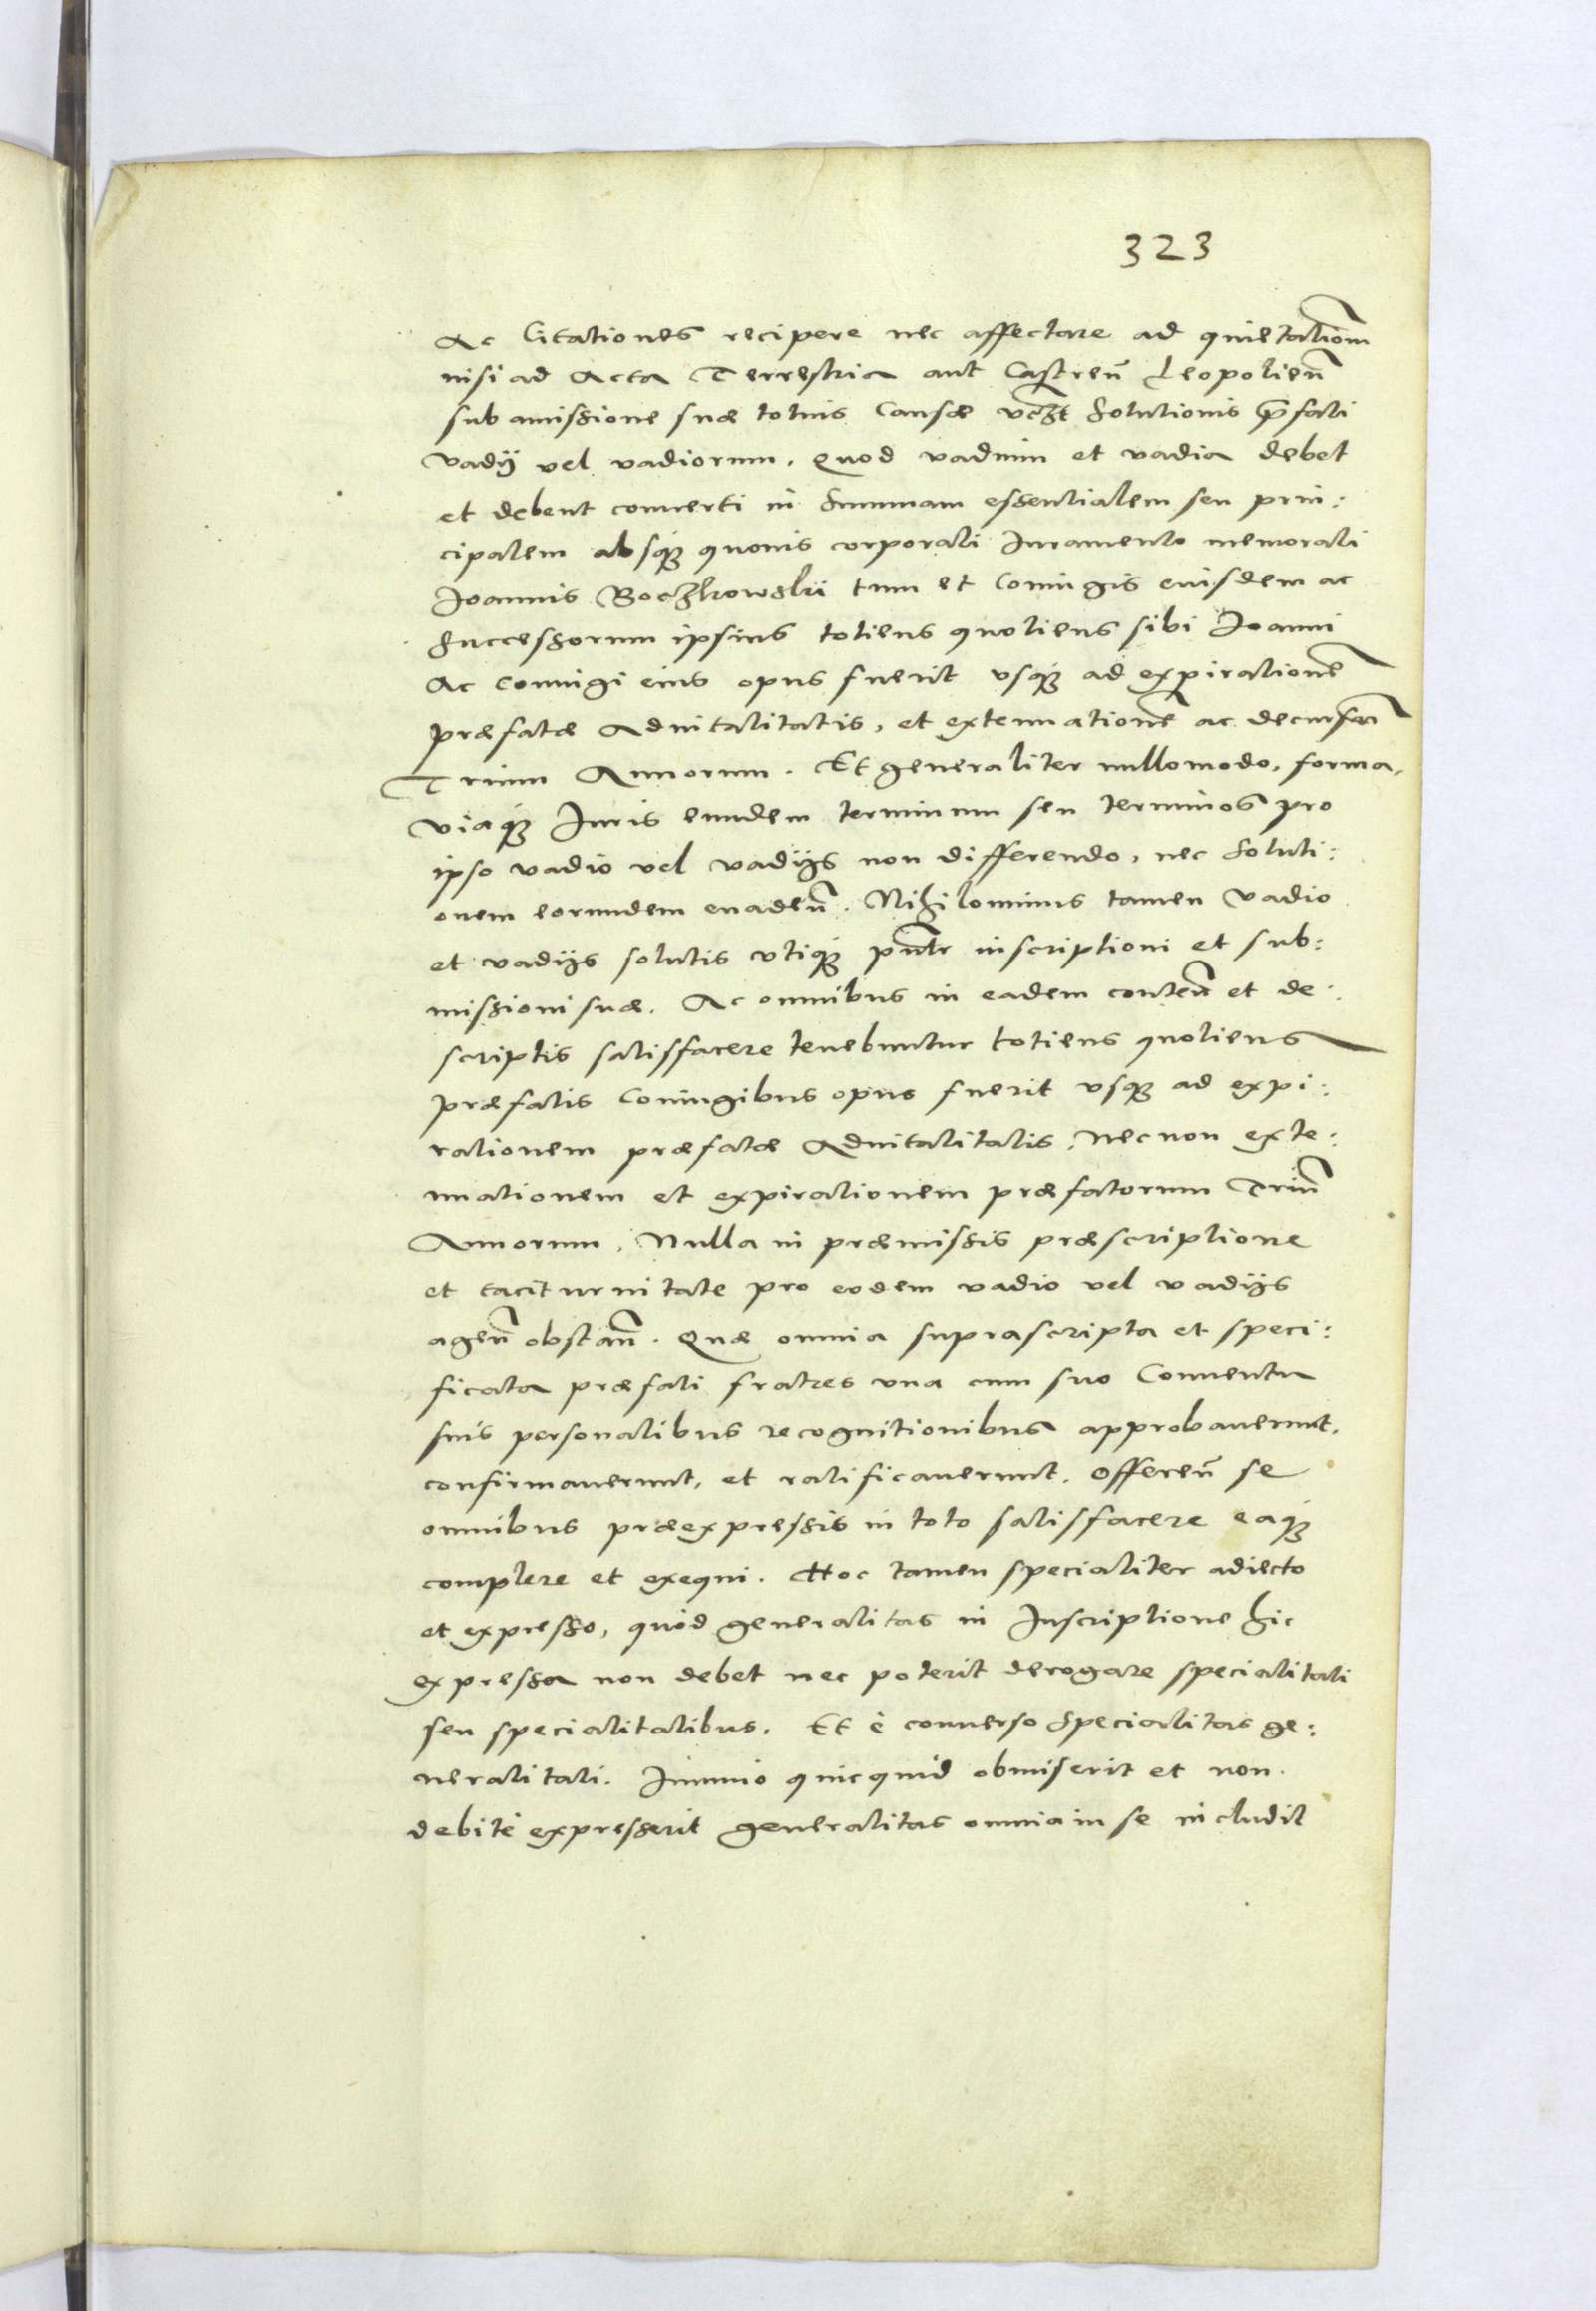 323
Ac Citationes recipere nec affectare ad quietationem
nisi ad Acta Terrestria aut Castren̄ Leopolien̄
sub amissione suæ totius Causæ vczt Solutionis p̄fati
vadij vel vadiorum. Quod vadium et vadia debet
et debent conuerti in Summam essentialem seu prin:
cipalem absq̃ quouis corporali Iuramento memorati
Joannis Boczkowski tum et Coniugis eiusdem ac
Successorum ipsius totiens quotiens sibi Joanni
Ac coniugi eius opus fuerit vsq̃ ad expirationē
præfatæ Aduitalitatis, et extenuationē ac decursum
Trium Annorum. Et generaliter nullo modo, forma,
viaq̃ Iuris eundem terminum seu terminos pro
ipso vadio vel vadijs non differendo, nec Soluti:
onem eorundem euaden̄. Nihilominus tamen Vadio
et vadijs solutis vtiq̃ pn̄tr inscriptioni et sub:
missioni suæ. Ac omnibus in eadem conten̄ et de:
scriptis satisfacere tenebuntur totiens quotiens
præfatis Coniugibus opus fuerit vsq̃ ad expi:
rationem præfatæ Aduitalitatis, necnon exte:
nuationem et expirationem præfatorum Triū
Annorum, Nulla in præmissis præscriptione
et taciturnitate pro eodem vadio vel vadijs
agen̄ obstan̄. Quæ omnia suprascripta et speci:
ficata præfati fratres vna cum suo Conuentu
suis personalibus recognitionibus approbauerunt,
confirmauerunt, et ratificauerunt. Offeren̄ se
omnibus præexpressis in toto satisfacere eaq̃
complere et exequi. Hoc tamen specialiter adiecto
et expresso, quòd generalitas in Inscriptione hic
expressa non debet nec poterit derogare specialitati
seu specialitatibus. Et è conuerso Specialitas ge:
neralitati. Immo quicquid obmiserit et non
debitè expresserit generalitas omnia in se includit